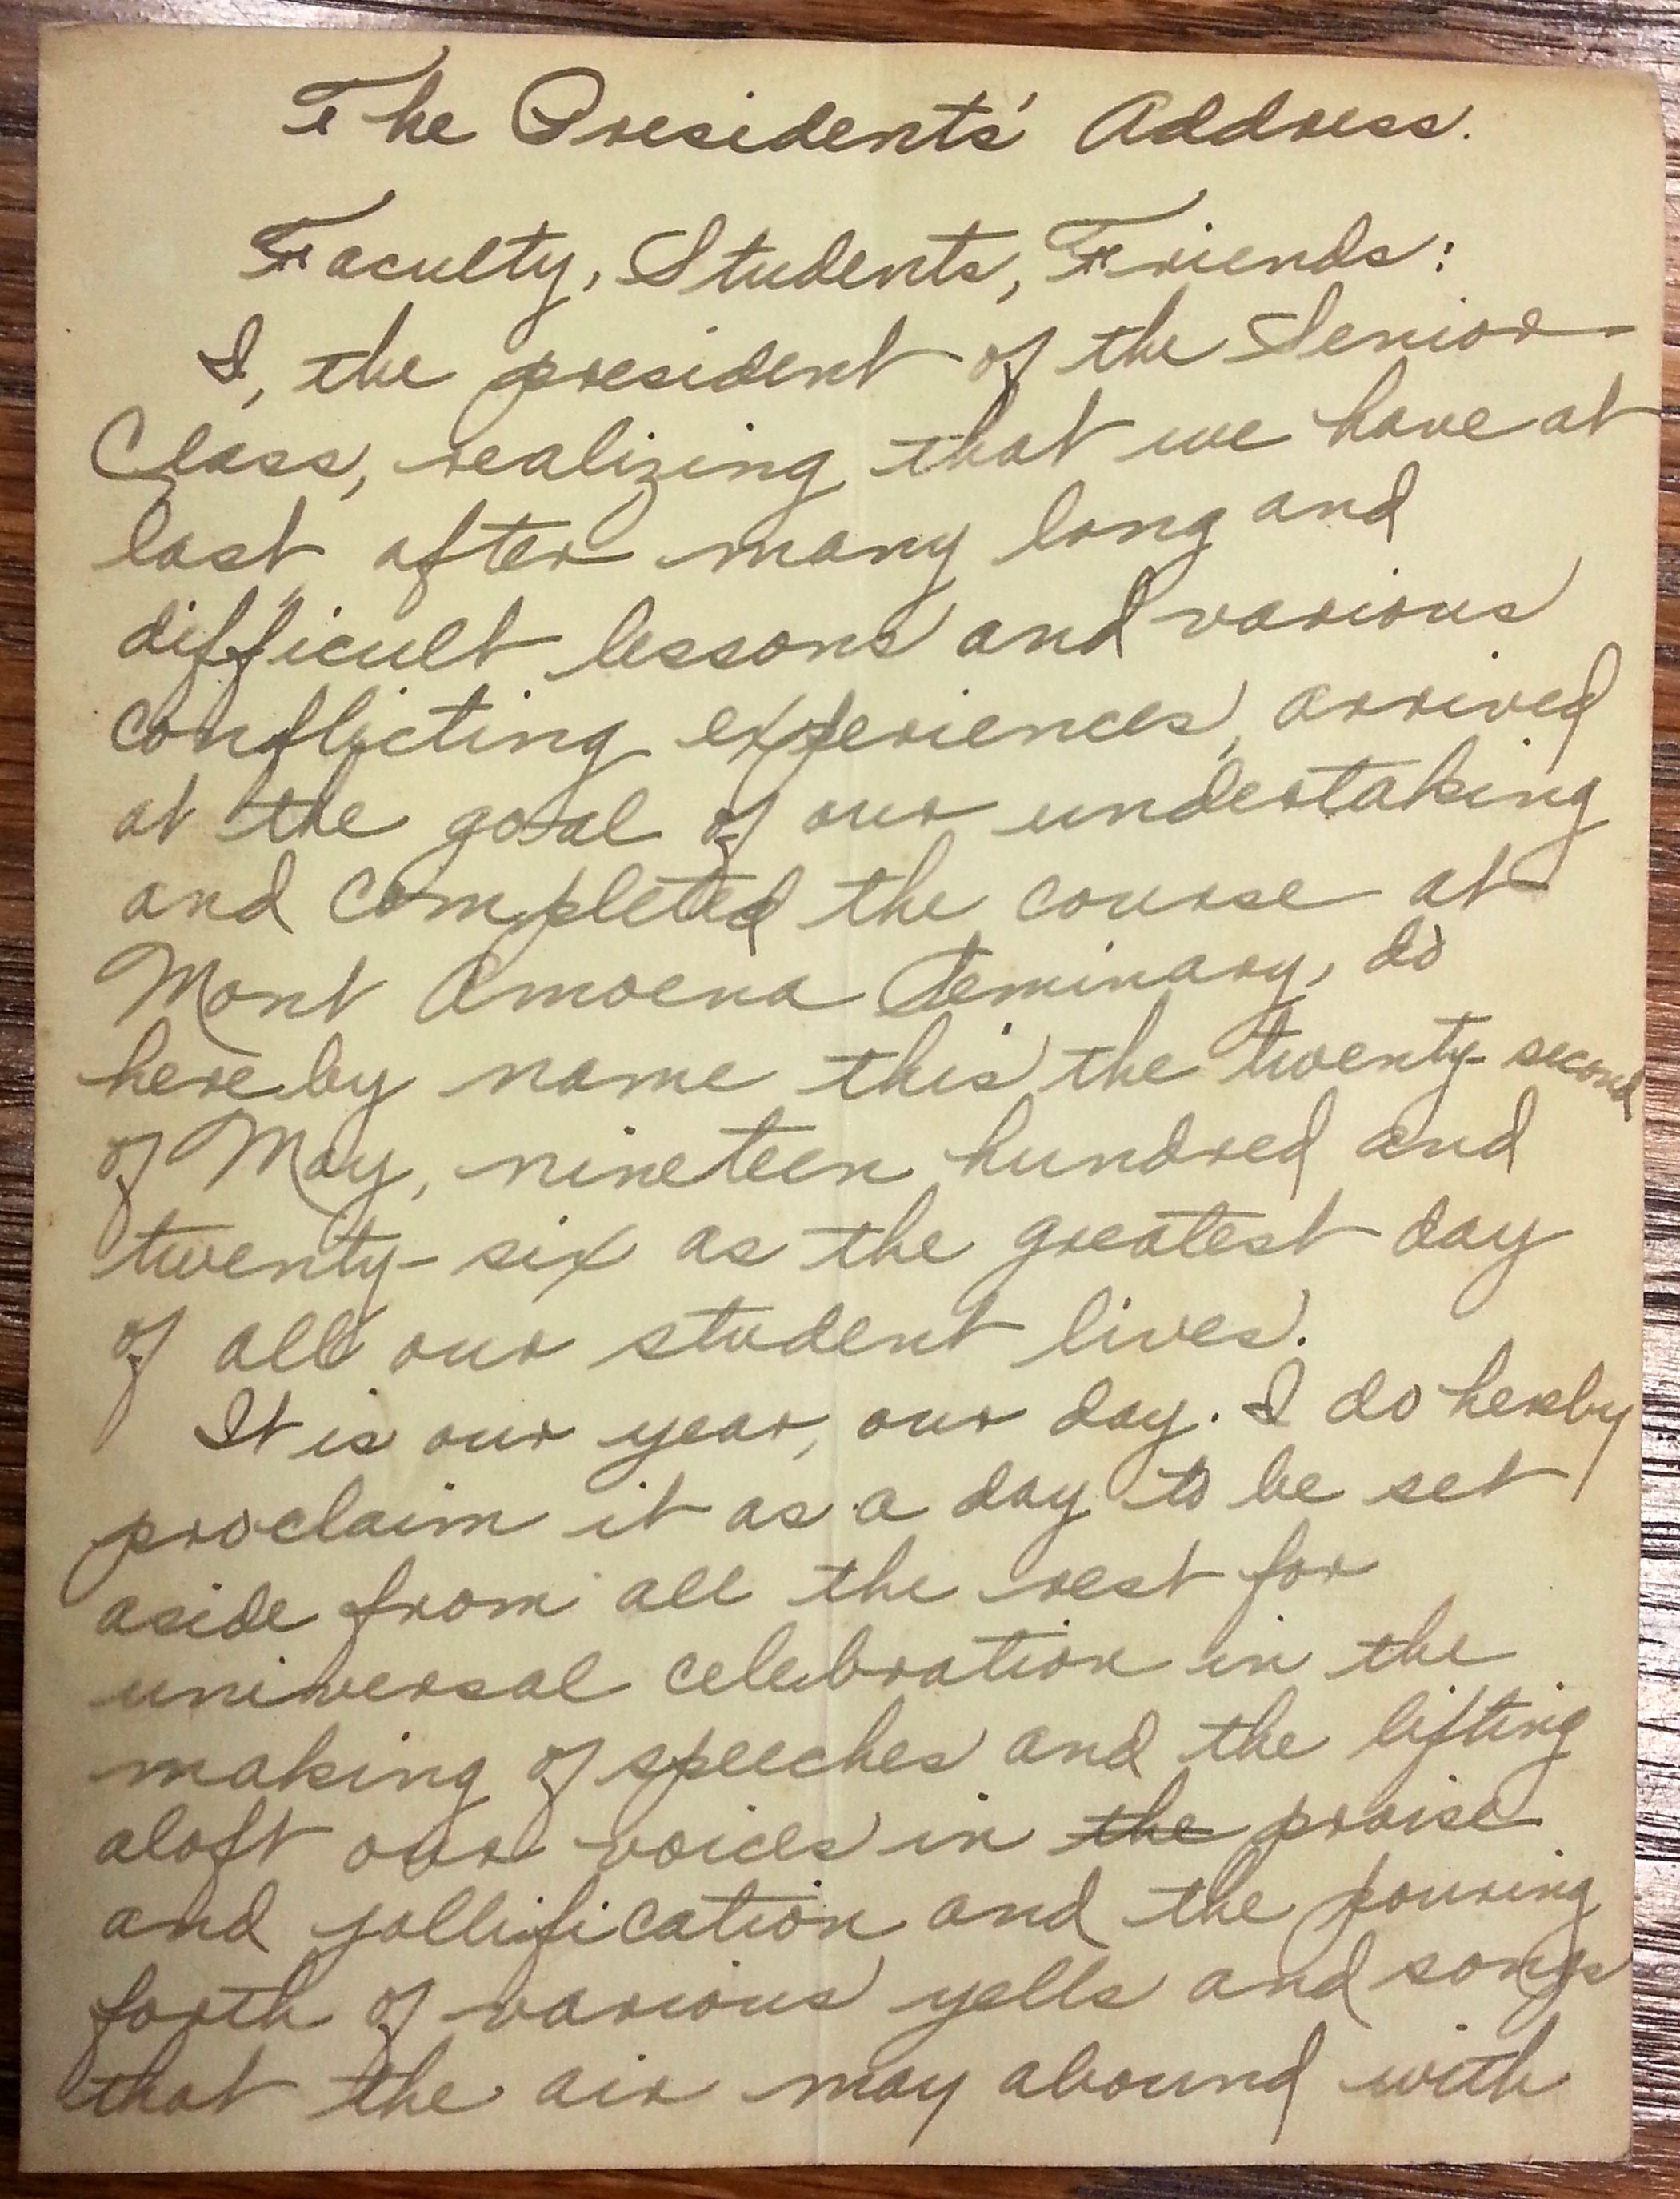 The Presidents' Address.
Faculty, Students, Friends:
I, the president of the Senior
Class, realizing that we have at
last after many long and
difficult lessons and various
conflicting experiences, arrived
at the goal of our undertaking
and completed the course at
Mont Amoena Seminary, do
hereby name this the twenty-second
of May, nineteen hundred and
twenty-six as the greatest day
of all our student lives.
It is our year, our day. I do hereby
proclaim it as a day to be set
aside from all the rest for
universal celebration in the
making of speeches and the lifting
aloft our voices in the praise
and jollification and the pouring
forth of various yells and songs
that the air may abound with